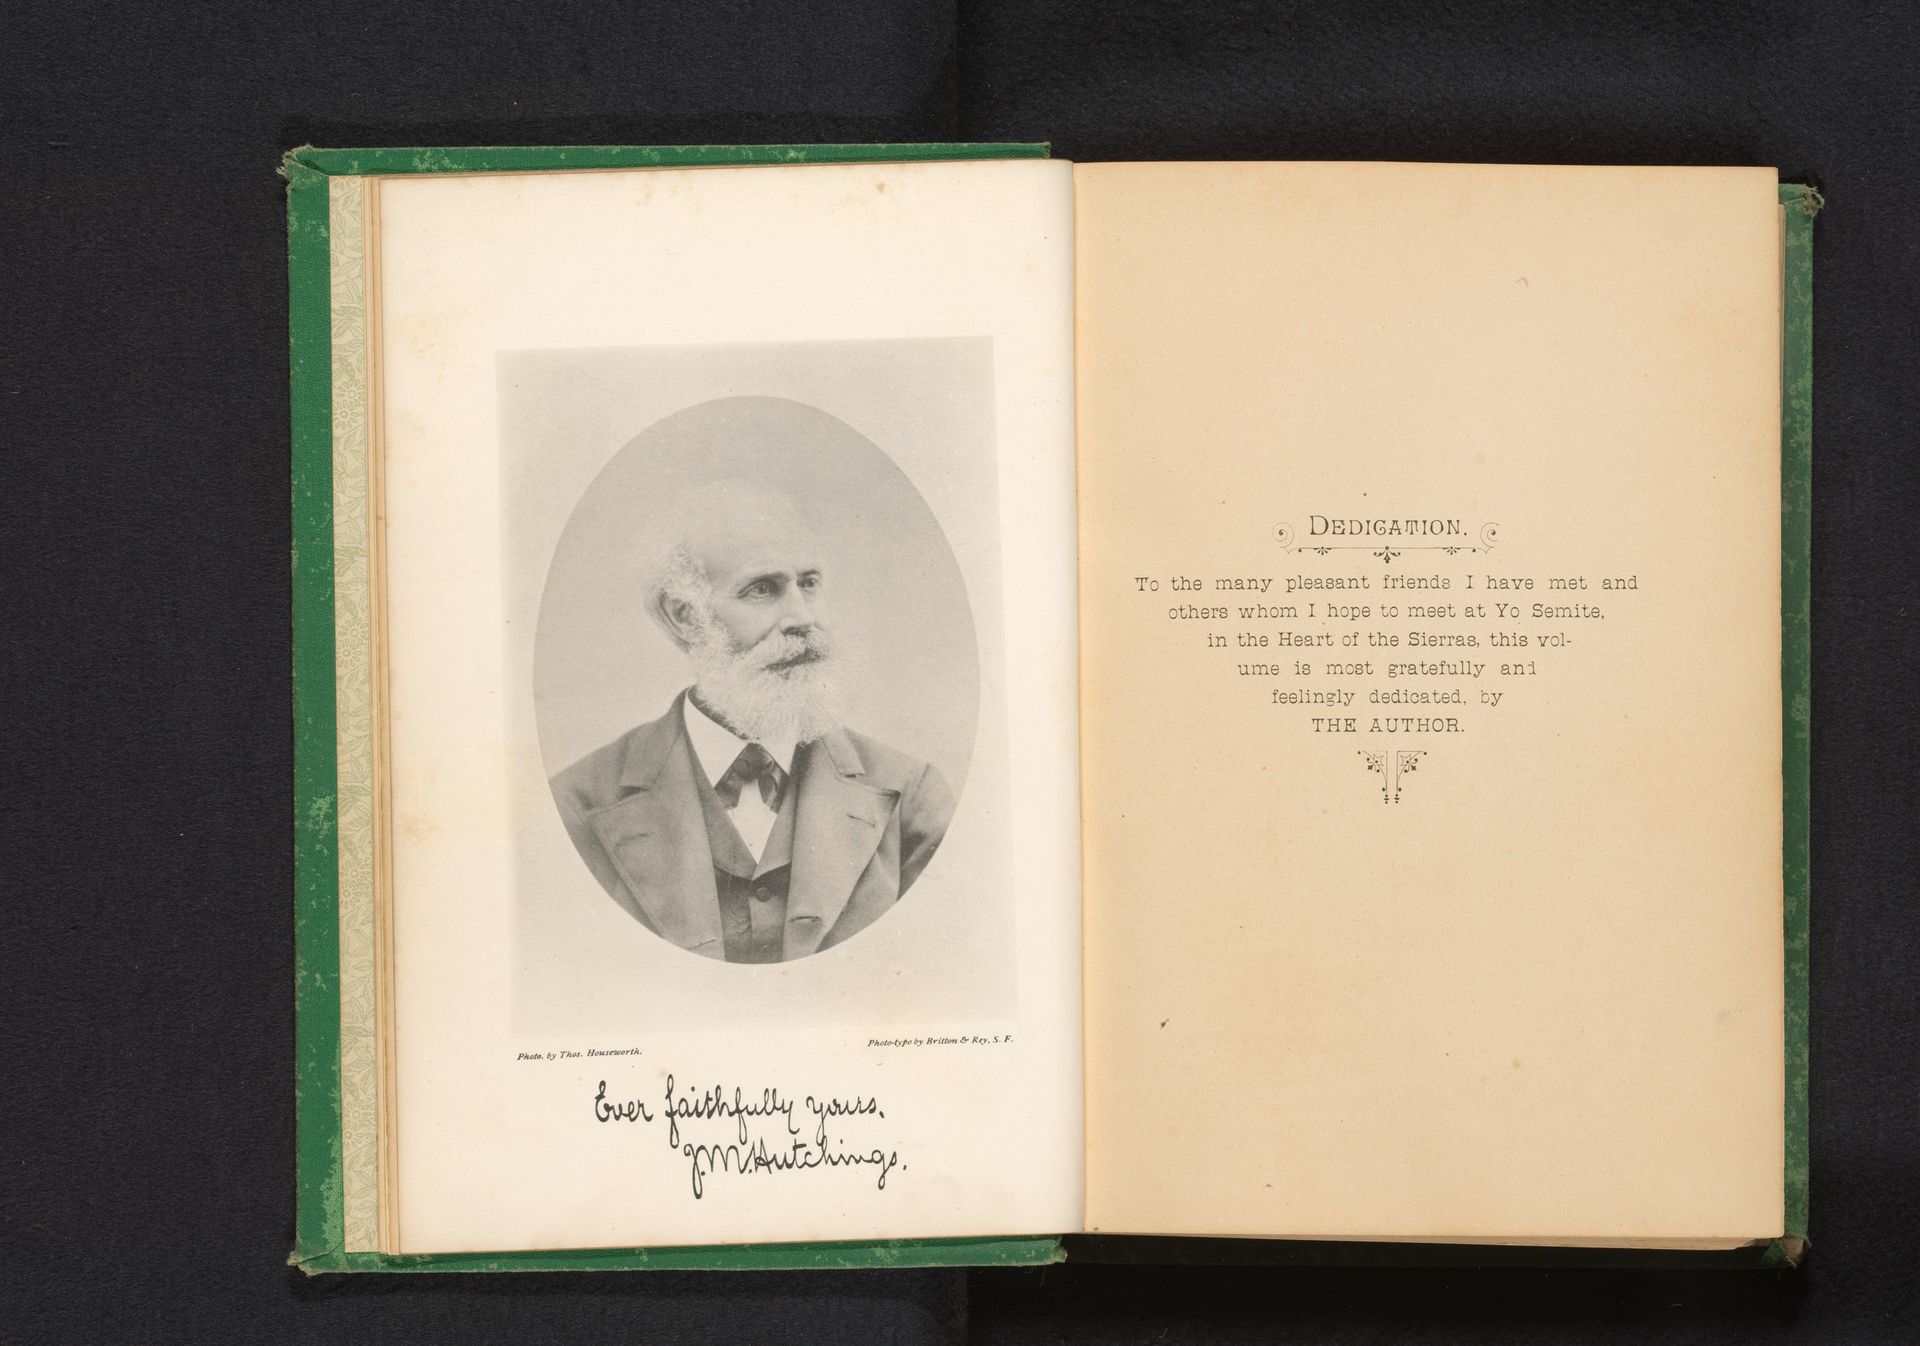 Photo. by Thos. Houseworth.
Photo-typo by Britton & Rey, S. F.
Ever faithfully yours.
J.M. Hutchings.
DEDICATION.
To the many pleasant friends I have met and
others whom I hope to meet at Yo Semite,
in the Heart of the Sierras, this vol-
ume is most gratefully and
feelingly dedicated, by
THE AUTHOR.